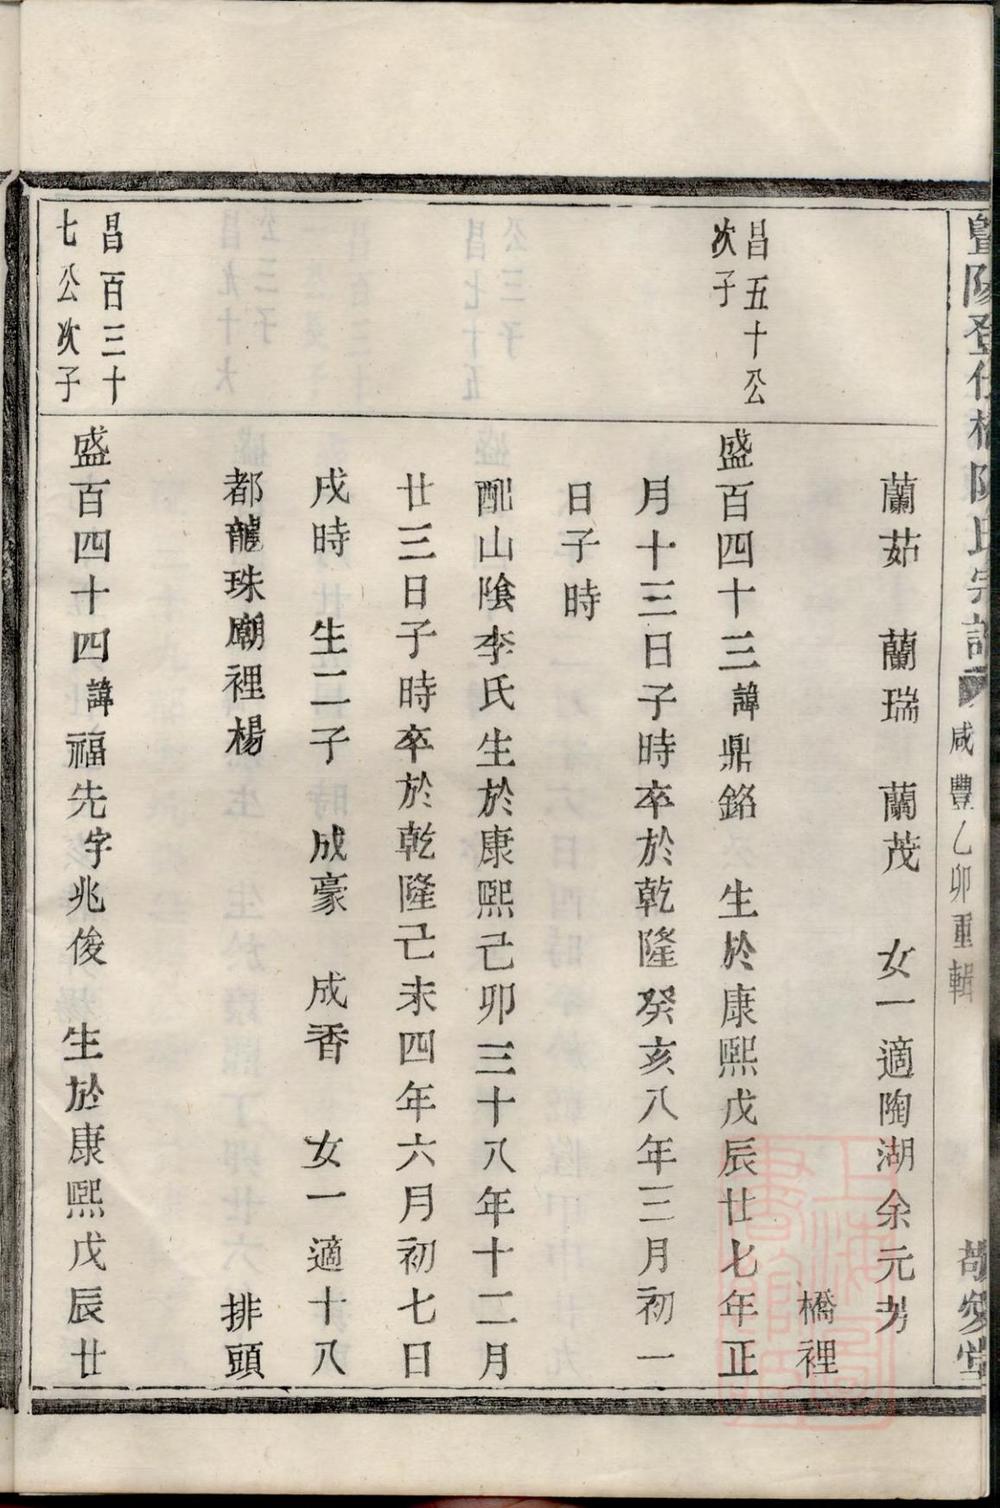 暨陽登仕橋陳氏宗譜
咸豐乙卯重輯
蘭茹 蘭瑞 蘭茂 女一適陶湖余元芳
橋裡
昌五十公
次子
盛百四十三諱鼎銘 生於康熙戊辰廿七年正
月十三日子時卒於乾隆癸亥八年三月初一
日子時
配山陰李氏生於康熙己卯三十八年十二月
廿三日子時卒於乾隆己未四年六月初七日
戌時生二子 成豪 成香 女一適十八
都龍珠廟裡楊 排頭
昌百三十
七公次子
盛百四十四諱福先字兆俊 生於康熙戊辰廿